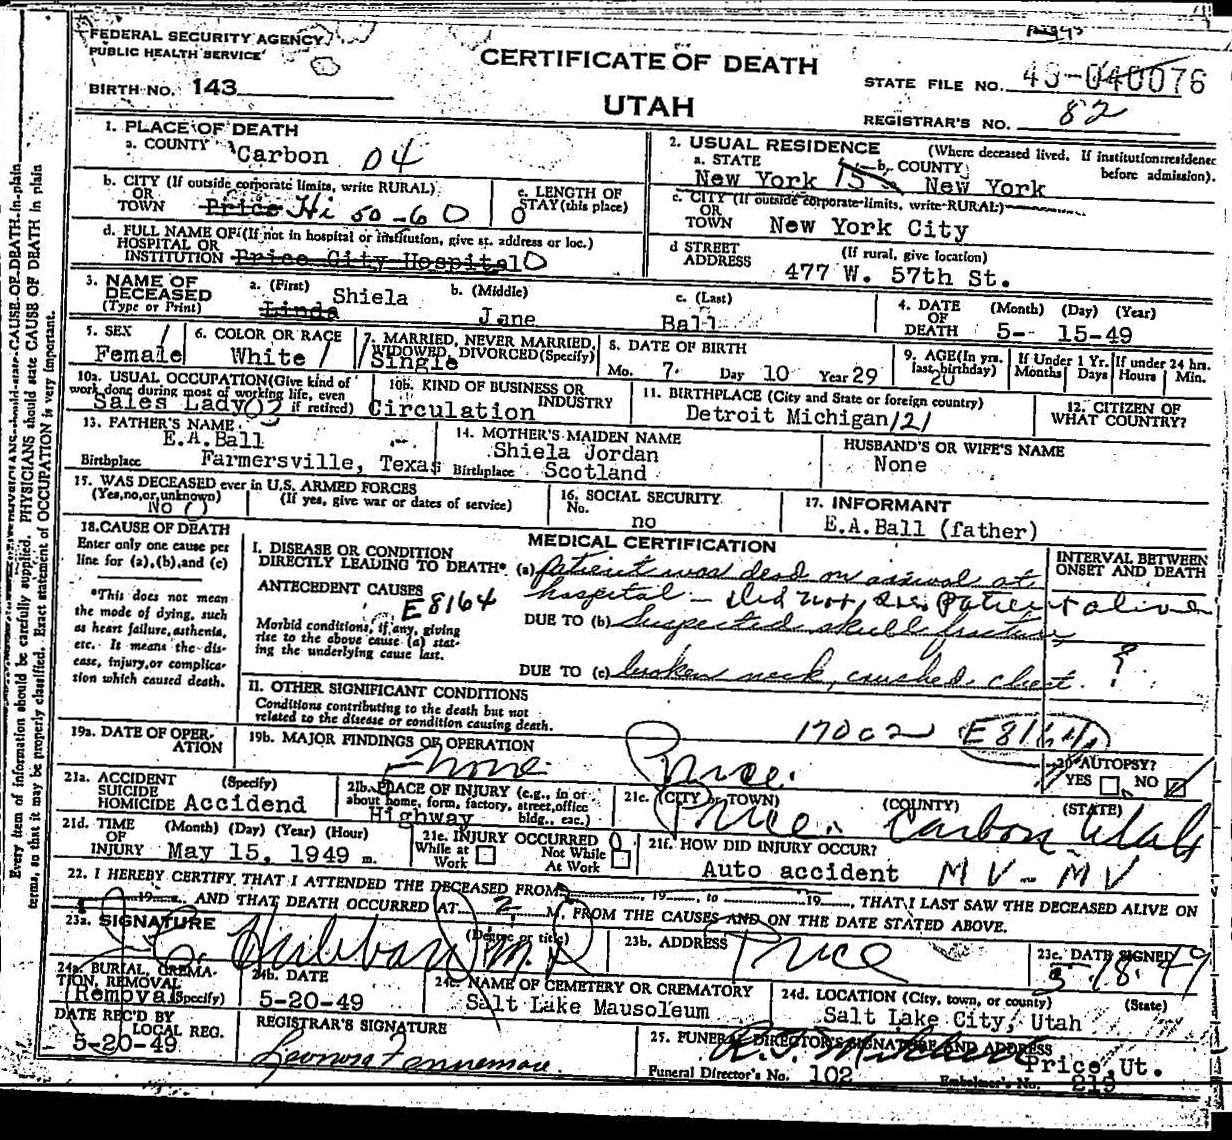 FEDERAL SECURITY AGENCY
PUBLIC HEALTH SERVICE
BIRTH NO. 143
CERTIFICATE OF DEATH
UTAH
STATE FILE NO. 49-040076
REGISTRAR'S NO. 82
1. PLACE OF DEATH
a. COUNTY Carbon 04
b. CITY (If outside corporate limits, write RURAL)
OR
TOWN Price Hi 50-60
c. LENGTH OF
STAY (this place)
0
d. FULL NAME OF (If not in hospital or institution, give st. address or loc.)
HOSPITAL OR
INSTITUTION Price City Hospital 0
2. USUAL RESIDENCE (Where deceased lived. If institution:residence
before admission).
a. STATE b. COUNTY
New York New York
c. CITY (If outside corporate limits, write RURAL)
OR
TOWN New York City
d STREET (If rural, give location)
ADDRESS 477 W. 57th St.
3. NAME OF
DECEASED
(Type or Print)
a. (First) Shiela b. (Middle) c. (Last)
Linda Jane Ball
4. DATE (Month) (Day) (Year)
OF
DEATH 5- 15-49
5. SEX
Female
6. COLOR OR RACE
White
7. MARRIED, NEVER MARRIED,
WIDOWED, DIVORCED (Specify)
Single
8. DATE OF BIRTH
Mo. 7 Day 10 Year 29
9. AGE (In yrs.
last birthday)
20
If Under 1 Yr.
Months Days
If under 24 hrs.
Hours Min.
10a. USUAL OCCUPATION (Give kind of
work done during most of working life, even
if retired)
Sales Lady 03
10b. KIND OF BUSINESS OR
INDUSTRY
Circulation
11. BIRTHPLACE (City and State or foreign country)
Detroit Michigan 121
12. CITIZEN OF
WHAT COUNTRY?
13. FATHER'S NAME
E.A.Ball
Birthplace Farmersville, Texas
14. MOTHER'S MAIDEN NAME
Shiela Jordan
Birthplace Scotland
HUSBAND'S OR WIFE'S NAME
None
15. WAS DECEASED ever in U.S. ARMED FORCES
(Yes,no,or unknown) (If yes, give war or dates of service)
No 0
16. SOCIAL SECURITY
No.
no
17. INFORMANT
E.A.Ball (father)
18. CAUSE OF DEATH
Enter only one cause per
line for (a),(b),and (c)
*This does not mean
the mode of dying, such
as heart failure, asthenia,
etc. It means the dis-
ease, injury, or complica-
tion which caused death.
MEDICAL CERTIFICATION
I. DISEASE OR CONDITION
DIRECTLY LEADING TO DEATH* (a) Patient was dead on arrival at
hospital - did not see patient alive
ANTECEDENT CAUSES
E8164
Morbid conditions, if any, giving
rise to the above cause (a) stat-
ing the underlying cause last.
DUE TO (b) Suspected skull fracture
DUE TO (c) broken neck, crushed chest
INTERVAL BETWEEN
ONSET AND DEATH
?
II. OTHER SIGNIFICANT CONDITIONS
Conditions contributing to the death but not
related to the disease or condition causing death.
E8164
19a. DATE OF OPER-
ATION
19b. MAJOR FINDINGS OF OPERATION
none Price.
20 AUTOPSY?
YES NO
21a. ACCIDENT (Specify)
SUICIDE
HOMICIDE Accidend
21b. PLACE OF INJURY (e.g., in or
about home, form, factory, street, office
bldg., eac.)
Highway
21c. (CITY or TOWN) (COUNTY) (STATE)
Price. Carbon Utah
21d. TIME (Month) (Day) (Year) (Hour)
OF
INJURY May 15, 1949 m.
21e. INJURY OCCURRED 0
While at Not While
Work At Work
21f. HOW DID INJURY OCCUR?
Auto accident MV-MV
22. I HEREBY CERTIFY THAT I ATTENDED THE DECEASED FROM 19, to 19, THAT I LAST SAW THE DECEASED ALIVE ON
19, AND THAT DEATH OCCURRED AT 2 M, FROM THE CAUSES AND ON THE DATE STATED ABOVE.
23a. SIGNATURE (Degree or title)
Hubbard M.D.
23b. ADDRESS
Price
23c. DATE SIGNED
5-18-49
24a. BURIAL, CREMA-
TION, REMOVAL
(Specify)
Removal
24b. DATE
5-20-49
24c. NAME OF CEMETERY OR CREMATORY
Salt Lake Mausoleum
24d. LOCATION (City, town, or county) (State)
Salt Lake City, Utah
DATE REC'D BY
LOCAL REG.
5-20-49
REGISTRAR'S SIGNATURE
25. FUNERAL DIRECTOR'S SIGNATURE AND ADDRESS
Price, Ut.
Funeral Director's No. 102 Embalmer's No. 219
Every item of information should be carefully supplied. PHYSICIANS should state CAUSE OF DEATH in plain
terms, so that it may be properly classified. Exact statement of OCCUPATION is very important.